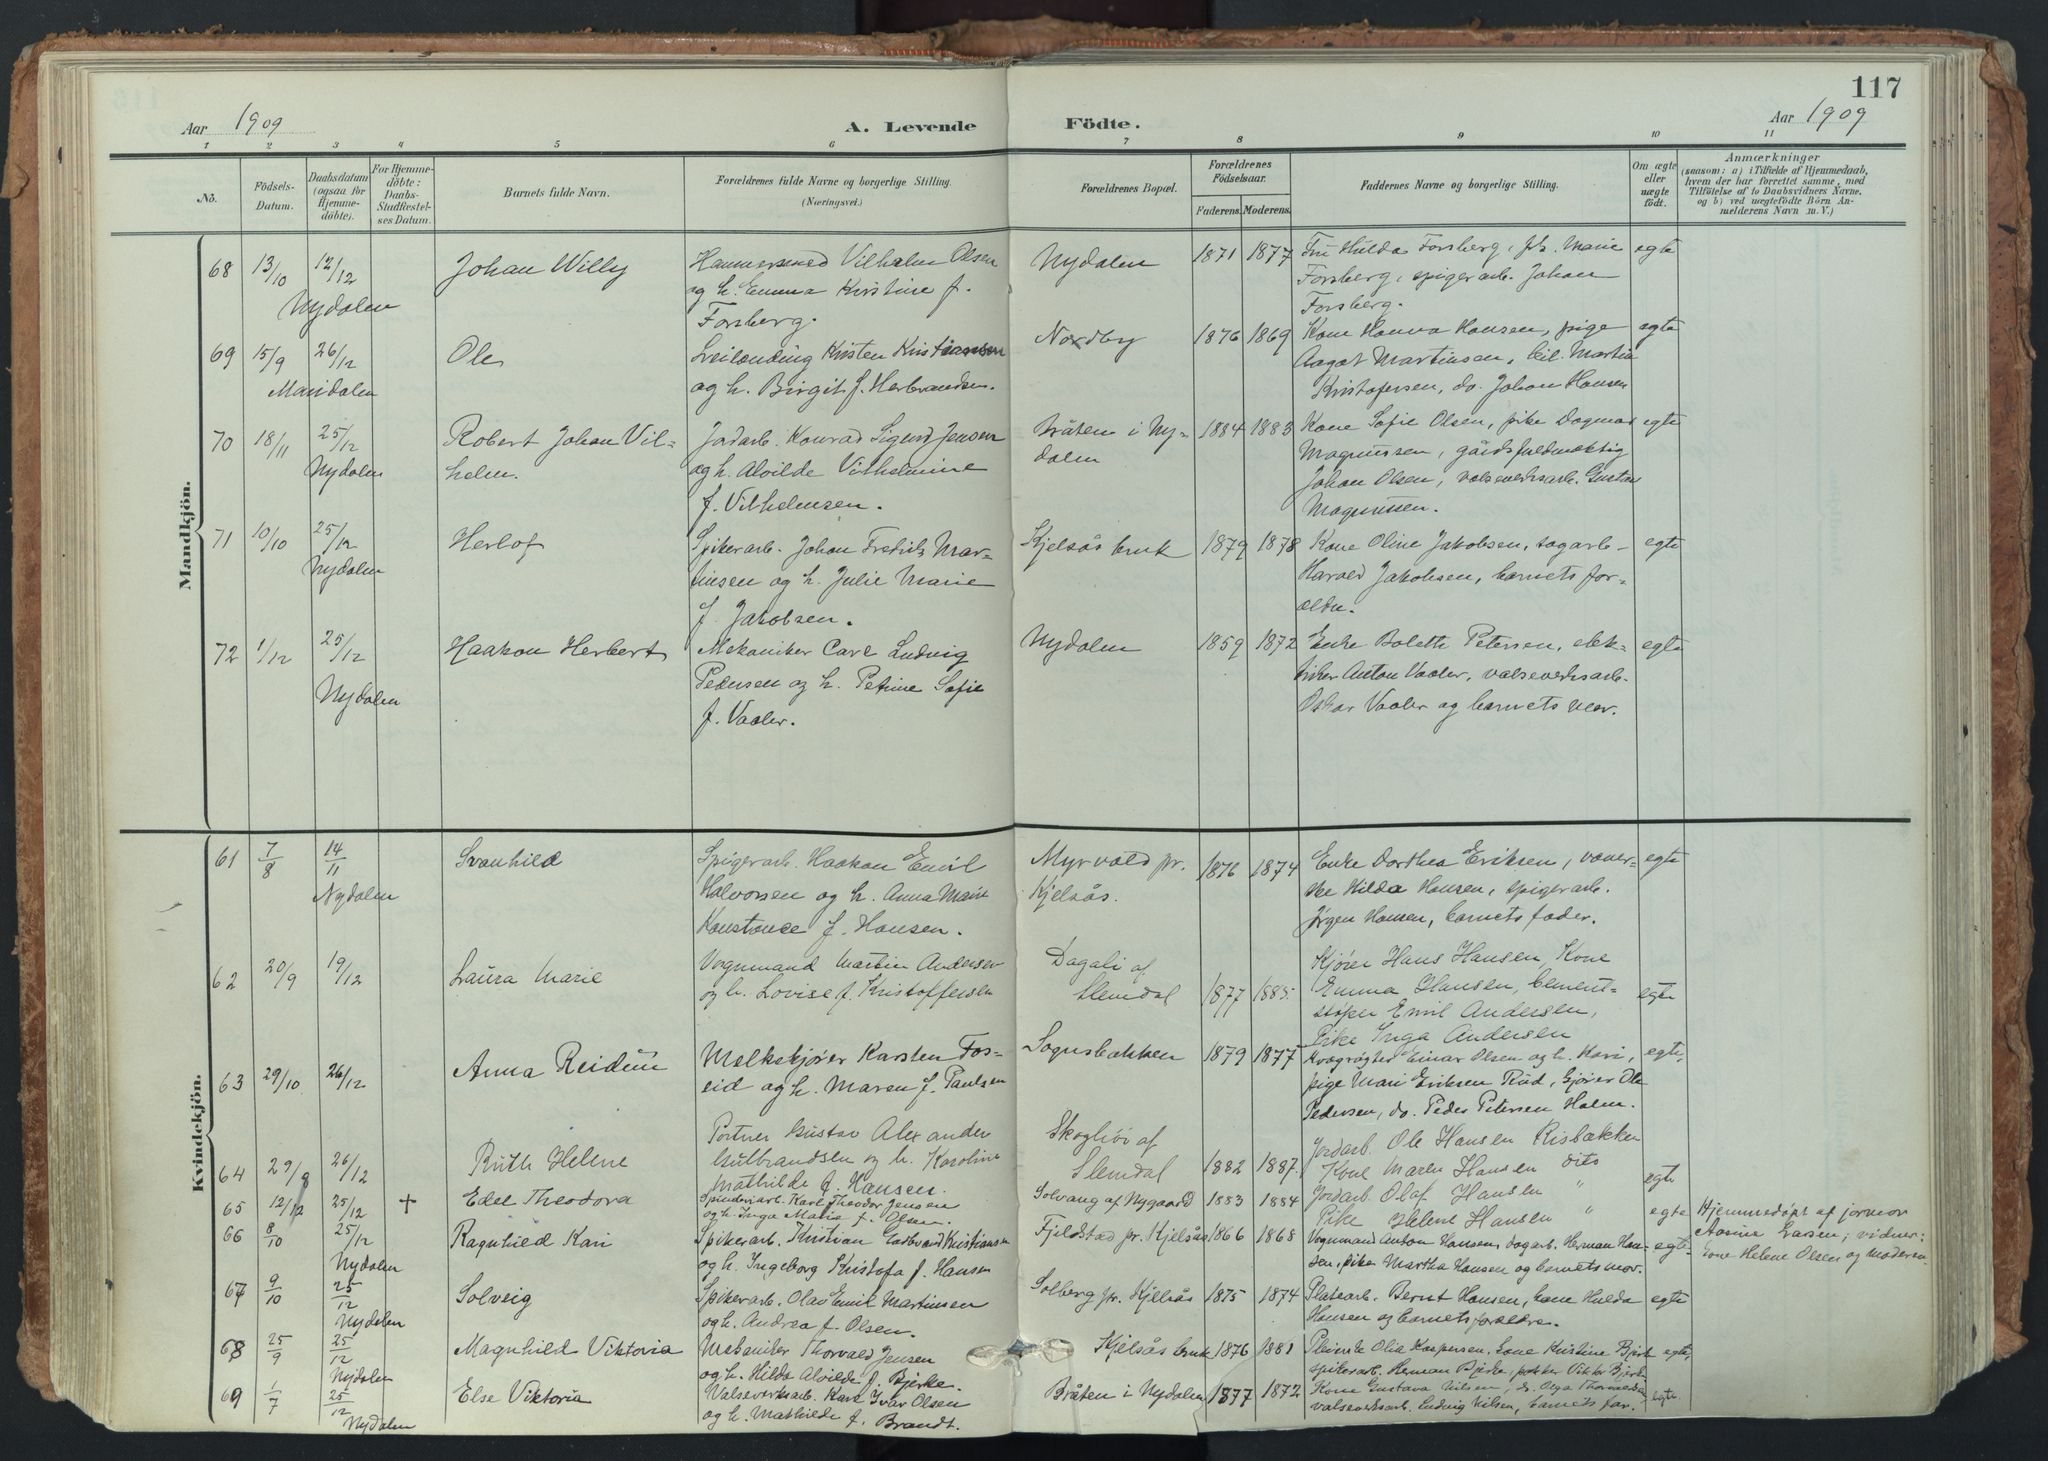 117
Aar 1909
A. Levende Födte.
Aar 1909
1 2 3 4 5 6 7 8 9 10 11
No.
Födsels-
Datum.
Daabsdatum
(ogsaa for
Hjemme-
döbte).
For Hjemme-
döbte:
Daabs-
Stadfæstel-
ses Datum.
Barnets fulde Navn.
Forældrenes fulde Navne og borgerlige Stilling.
(Næringsvei.)
Forældrenes Bopæl.
Forældrenes
Födselsaar.
Faderens. Moderens.
Faddernes Navne og borgerlige Stilling.
Om ægte
eller
uægte
födt.
Anmærkninger
(saasom: a) i Tilfælde af Hjemmedaab,
hvem der har forrettet samme, med
Tilföielse af to Daabsvidners Navne,
og b) ved uægtefödte Börn An-
melderens Navn m. V.)
Mandkjön.
68 13/10 12/12 Johan Willy Hammersmed Vilhelm Olsen Nydalen 1871 1877 Fru Hulda Forsberg, frk. Marie egte
Nydalen og h. Emma Kristine f. Forsberg, spigerarb. Johan
Forsberg. Forsberg.
69 15/9 26/12 Ole Leilending Kristen Kristiansen Nordby 1876 1869 Kone Hanna Hansen, pige egte
Maridalen og h. Birgit f. Herbrandsen. Aagot Martinsen, Martin
Kristofersen, do. Johan Hansen
70 18/11 25/12 Robert Johan Vil- Jordarb. Konrad Sigurd Jensen Bråten i Ny- 1884 1883 Kone Sofie Olsen, pike Dagmar egte
Nydalen helm. og h. Alvilde Vilhelmine dalen Magnussen, gårdsfuldmektig
f. Vilhelmsen. Johan Olsen, valseverksarb. Gustav
Magnussen.
71 10/10 25/12 Herlof Spikerarb. Johan Fredrik Mar- Kjelsås bruk 1879 1878 Kone Oline Jakobsen, sagarb- egte
Nydalen tinsen og h. Julie Marie Harald Jakobsen, barnets for-
f. Jakobsen. ældre.
72 1/12 25/12 Haakon Herbert Mekaniker Carl Ludvig Nydalen 1859 1872 Enke Boleth Petersen, elek- egte
Nydalen Pedersen og h. Petrine Sofie triker Anton Vaaler, valseverksarb.
f. Vaaler. Oskar Vaaler og barnets mor.
Kvindekjön.
61 7/8 14/11 Svanhild Spigerarb. Haakon Emil Myrvold pr. 1876 1874 Enke Dorthea Eriksen, væver- egte
Nydalen Halvorsen og h. Anna Marie Kjelsås. ske Hilda Hansen, spigerarb.
Konstance f. Hansen. Jörgen Hansen, barnets fader.
62 20/9 19/12 Laura Marie Vognmand Martin Andersen Dagali af Kjører Hans Hansen, Kone
og h. Lovise f. Kristoffersen Slemdal 1877 1885. Emma Hansen, Cement- egte
støper Emil Andersen,
Pike Inga Andersen
63 29/10 26/12 Anna Reidun Melkekjører Karsten Fos- Sognsbakken 1879 1877 Kvægrøgter Einar Olsen og h. Kari, egte,
eid og h. Maren f. Paulsen pige Mari Eriksen Rud, Gjører Ole
Pedersen, do. Peder Petersen Holm.
64 29/9 26/12 Ruth Helene Portner Gustav Alexander Skogliói af Jordarb. Ole Hansen Risbækken
Gulbrandsen og h. Karoline Slemdal 1882 1887. Kone Maren Hansen dito egte
Mathilde f. Hansen.
65 12/12 25/12 + Edel Theodora Spinderiarb. Karl Theodor Jensen Solvang af Nygaard 1883 1884 Jordarb. Olaf Hansen " egte Hjemmedøpt af jormor
og h. Inga Marie f. Olsen. Pike Helene Hansen " Aasine Larsen; vidner:
66 8/10 25/12 Ragnhild Kari Spikerarb. Kristian Kristiansen Fjeldstad pr. Kjelsås 1866 1868 Vognmand Anton Hansen, dagarb. Herman Han- egte- Kone Helene Olsen og Moderen
Nydalen og h. Ingeborg Kristofa f. Hansen sen, piker Martha Hansen og barnets mor.
67 9/10 25/12 Solveig Spikerarb. Olav Emil Martinsen Solberg pr. Kjelsås 1875 1874 Platearb. Bernt Hansen, kone Hulda egte
Nydalen og h. Andrea f. Olsen. Hansen og barnets forældre.
68 25/9 25/12 Magnhild Viktoria Mekaniker Thorvald Jensen Kjelsås bruk 1876 1881 Olia Kaspersen, kone Kristine Bjerke egte,
Nydalen og h. Hilda Alvilde f. Bjerke. spikerarb. Herman Bjerke, Viktor Bjerke
69 1/7 25/12 Else Viktoria Valseverksarb. Karl Ivar Olsen Bråten i Nydalen 1877 1872 Kone Gustava Nilsen, do. Olga Thorvaldsen egte.
Nydalen og h. Mathilde f. Brandt. valseverksarb. Ludvig Nilsen, barnets far.